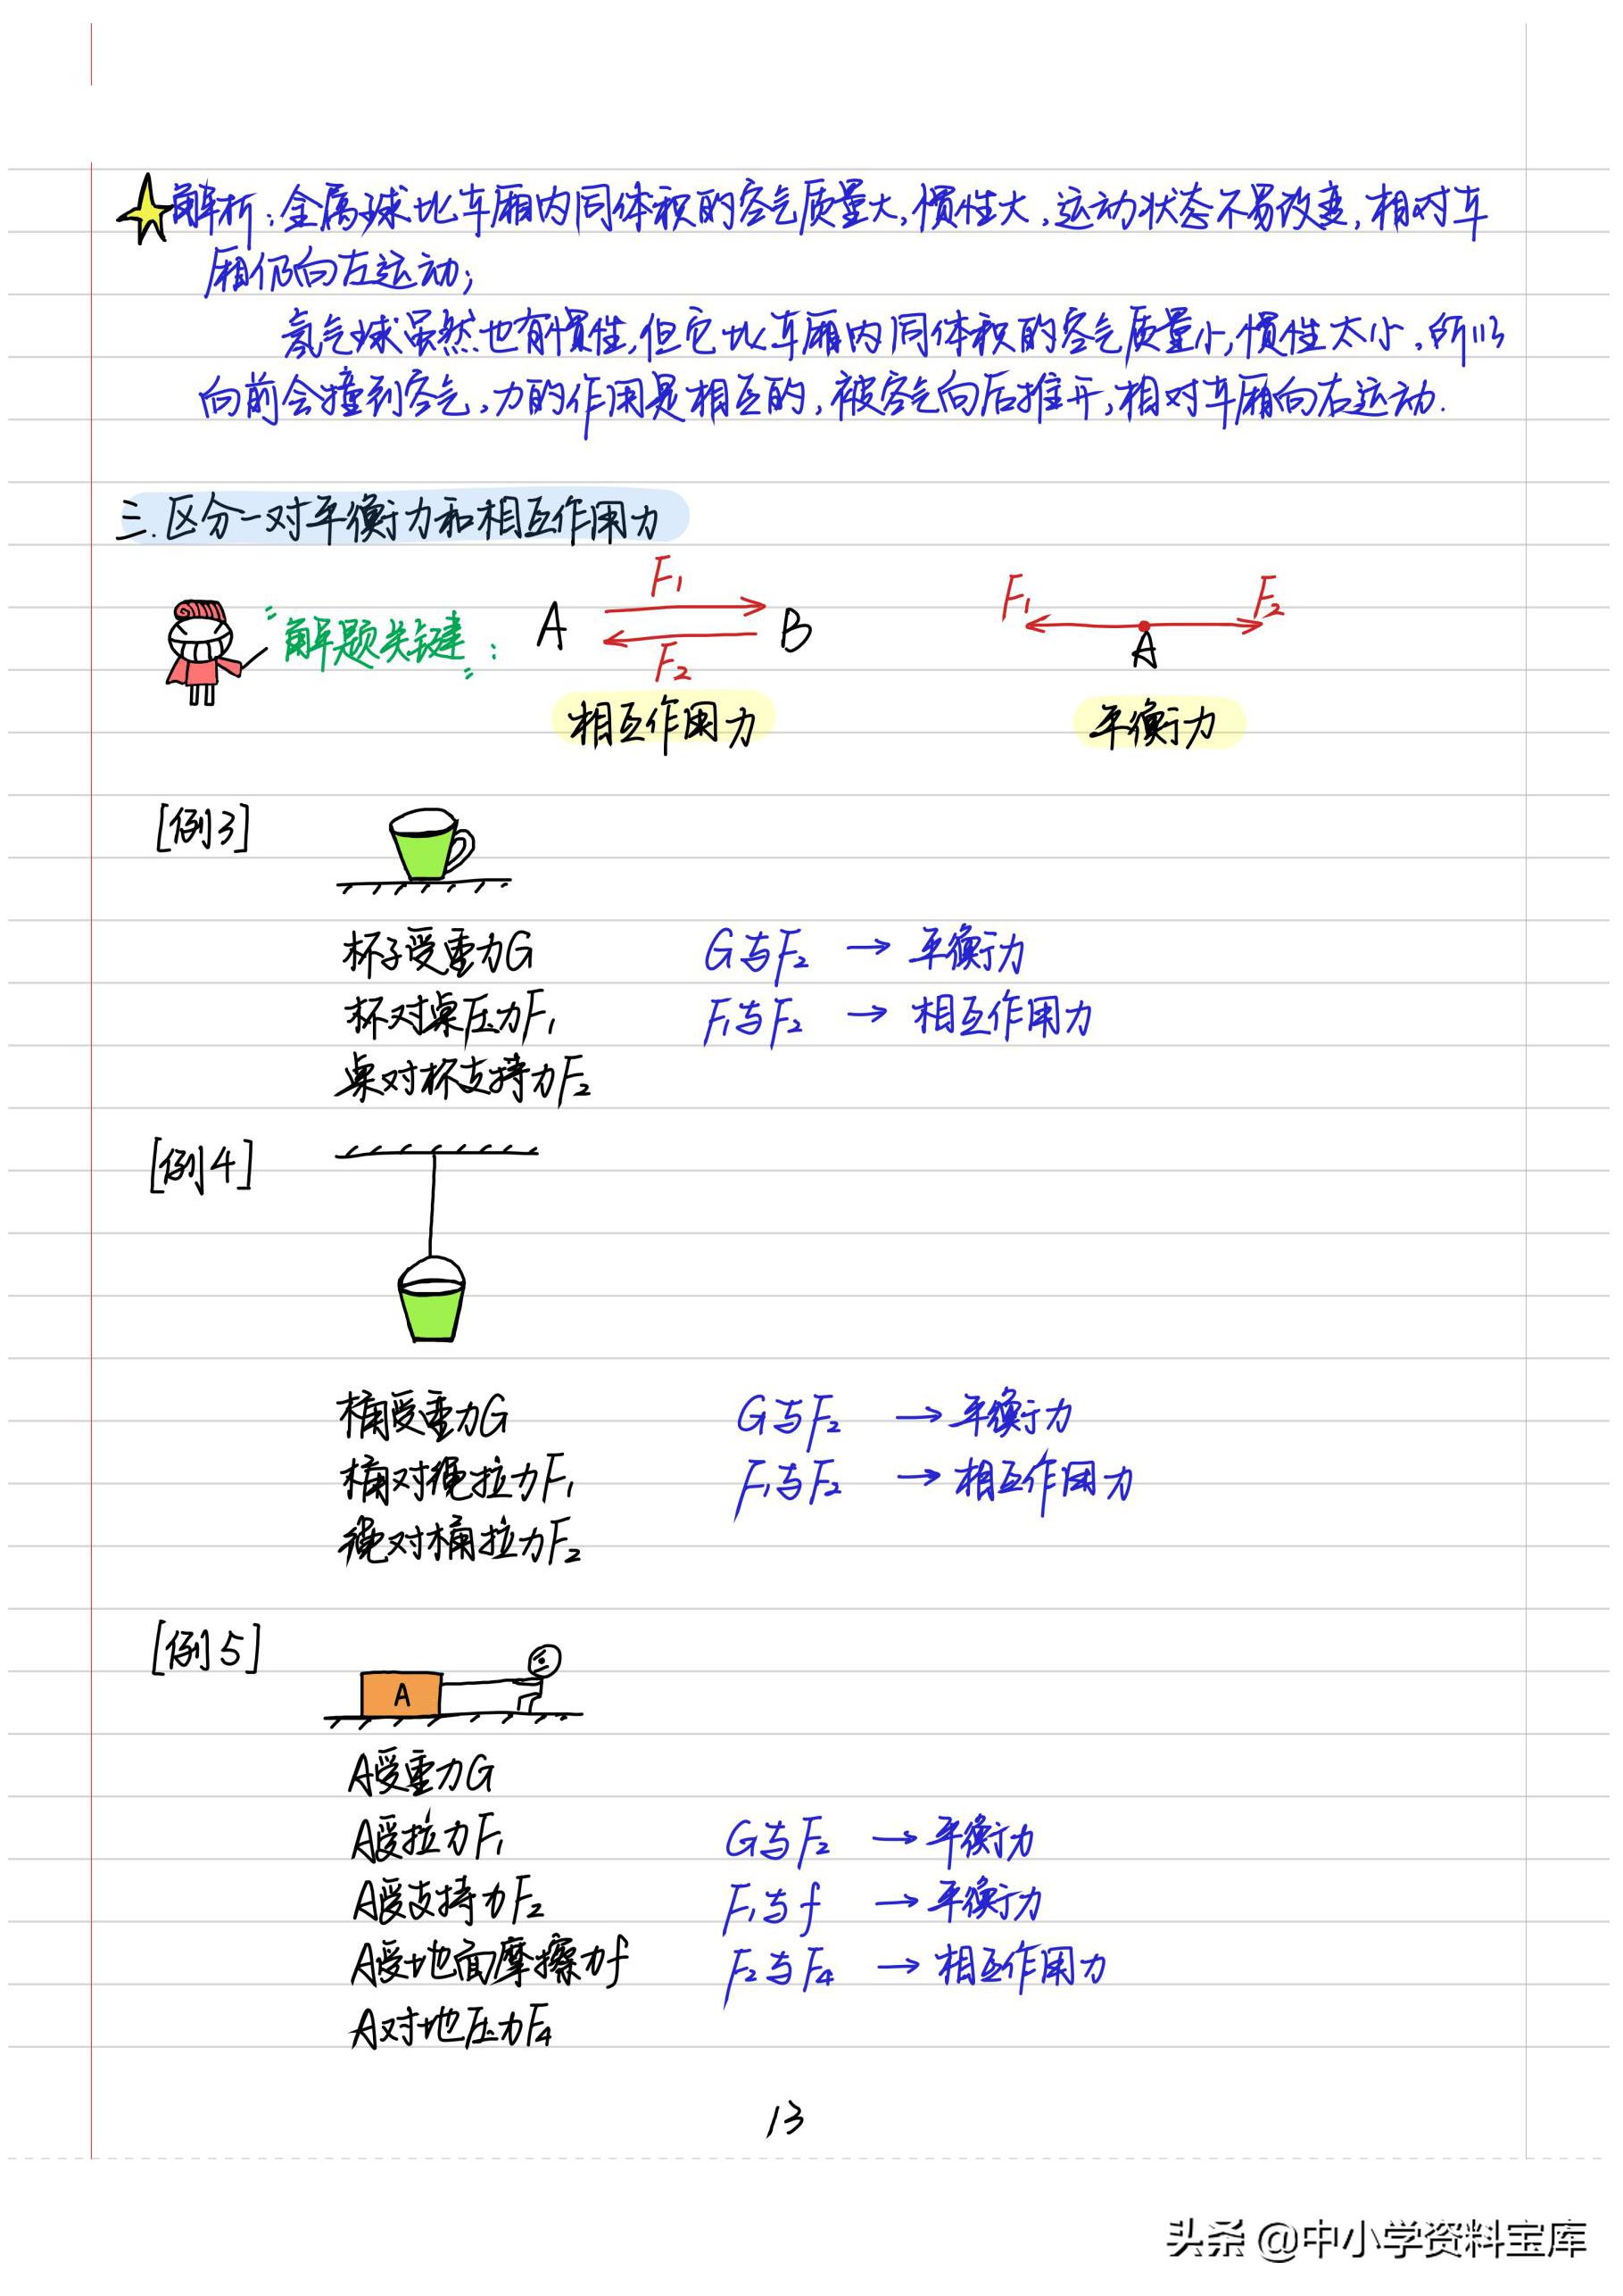 解析:金属球比车厢内同体积的空气质量大,惯性大,运动状态不易改变,相对车
厢仍向左运动;
氢气球虽然也有惯性,但它比车厢内同体积的空气质量小,惯性太小,所以
向前会撞到空气,力的作用是相互的,被空气向后推开,相对车厢向右运动.
三.区分一对平衡力和相互作用力
"解题关键": A F₁ F₂ B F₁ A F₂
相互作用力 平衡力
[例3]
杯子受重力G G与F₂ → 平衡力
杯对桌压力F₁ F₁与F₂ → 相互作用力
桌对杯支持力F₂
[例4]
桶受重力G G与F₂ → 平衡力
桶对绳拉力F₁ F₁与F₂ → 相互作用力
绳对桶拉力F₂
[例5]
A
A受重力G
A受拉力F₁ G与F₂ → 平衡力
A受支持力F₂ F₁与f → 平衡力
A受地面摩擦力f F₂与F₄ → 相互作用力
A对地压力F₄
13
头条 @中小学资料宝库